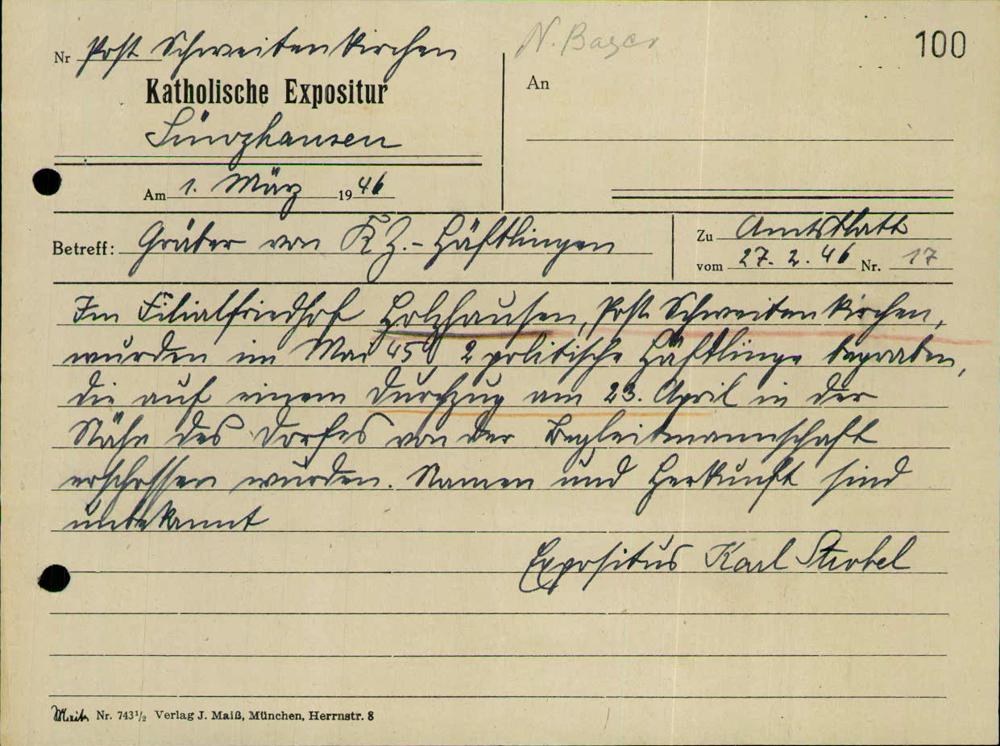 N. Bayer
100
Nr Post Schweitenkirchen
Katholische Expositur
Sünzhausen
An
Am 1. März 1946
Betreff: Gräber von KZ.-Häftlingen
Zu Amtsblatt
vom 27. 2. 46 Nr. 17
Im Filialfriedhof Holzhausen, Post Schweitenkirchen,
wurden im Mai 45, 2 politische Häftlinge begraben,
die auf einem Durchzug am 23. April in der
Nähe des Dorfes von der Begleitmannschaft
erschossen wurden. Namen und Herkunft sind
unbekannt
Expositus Karl Strobel
Maiß Nr. 743½ Verlag J. Maiß, München, Herrnstr. 8